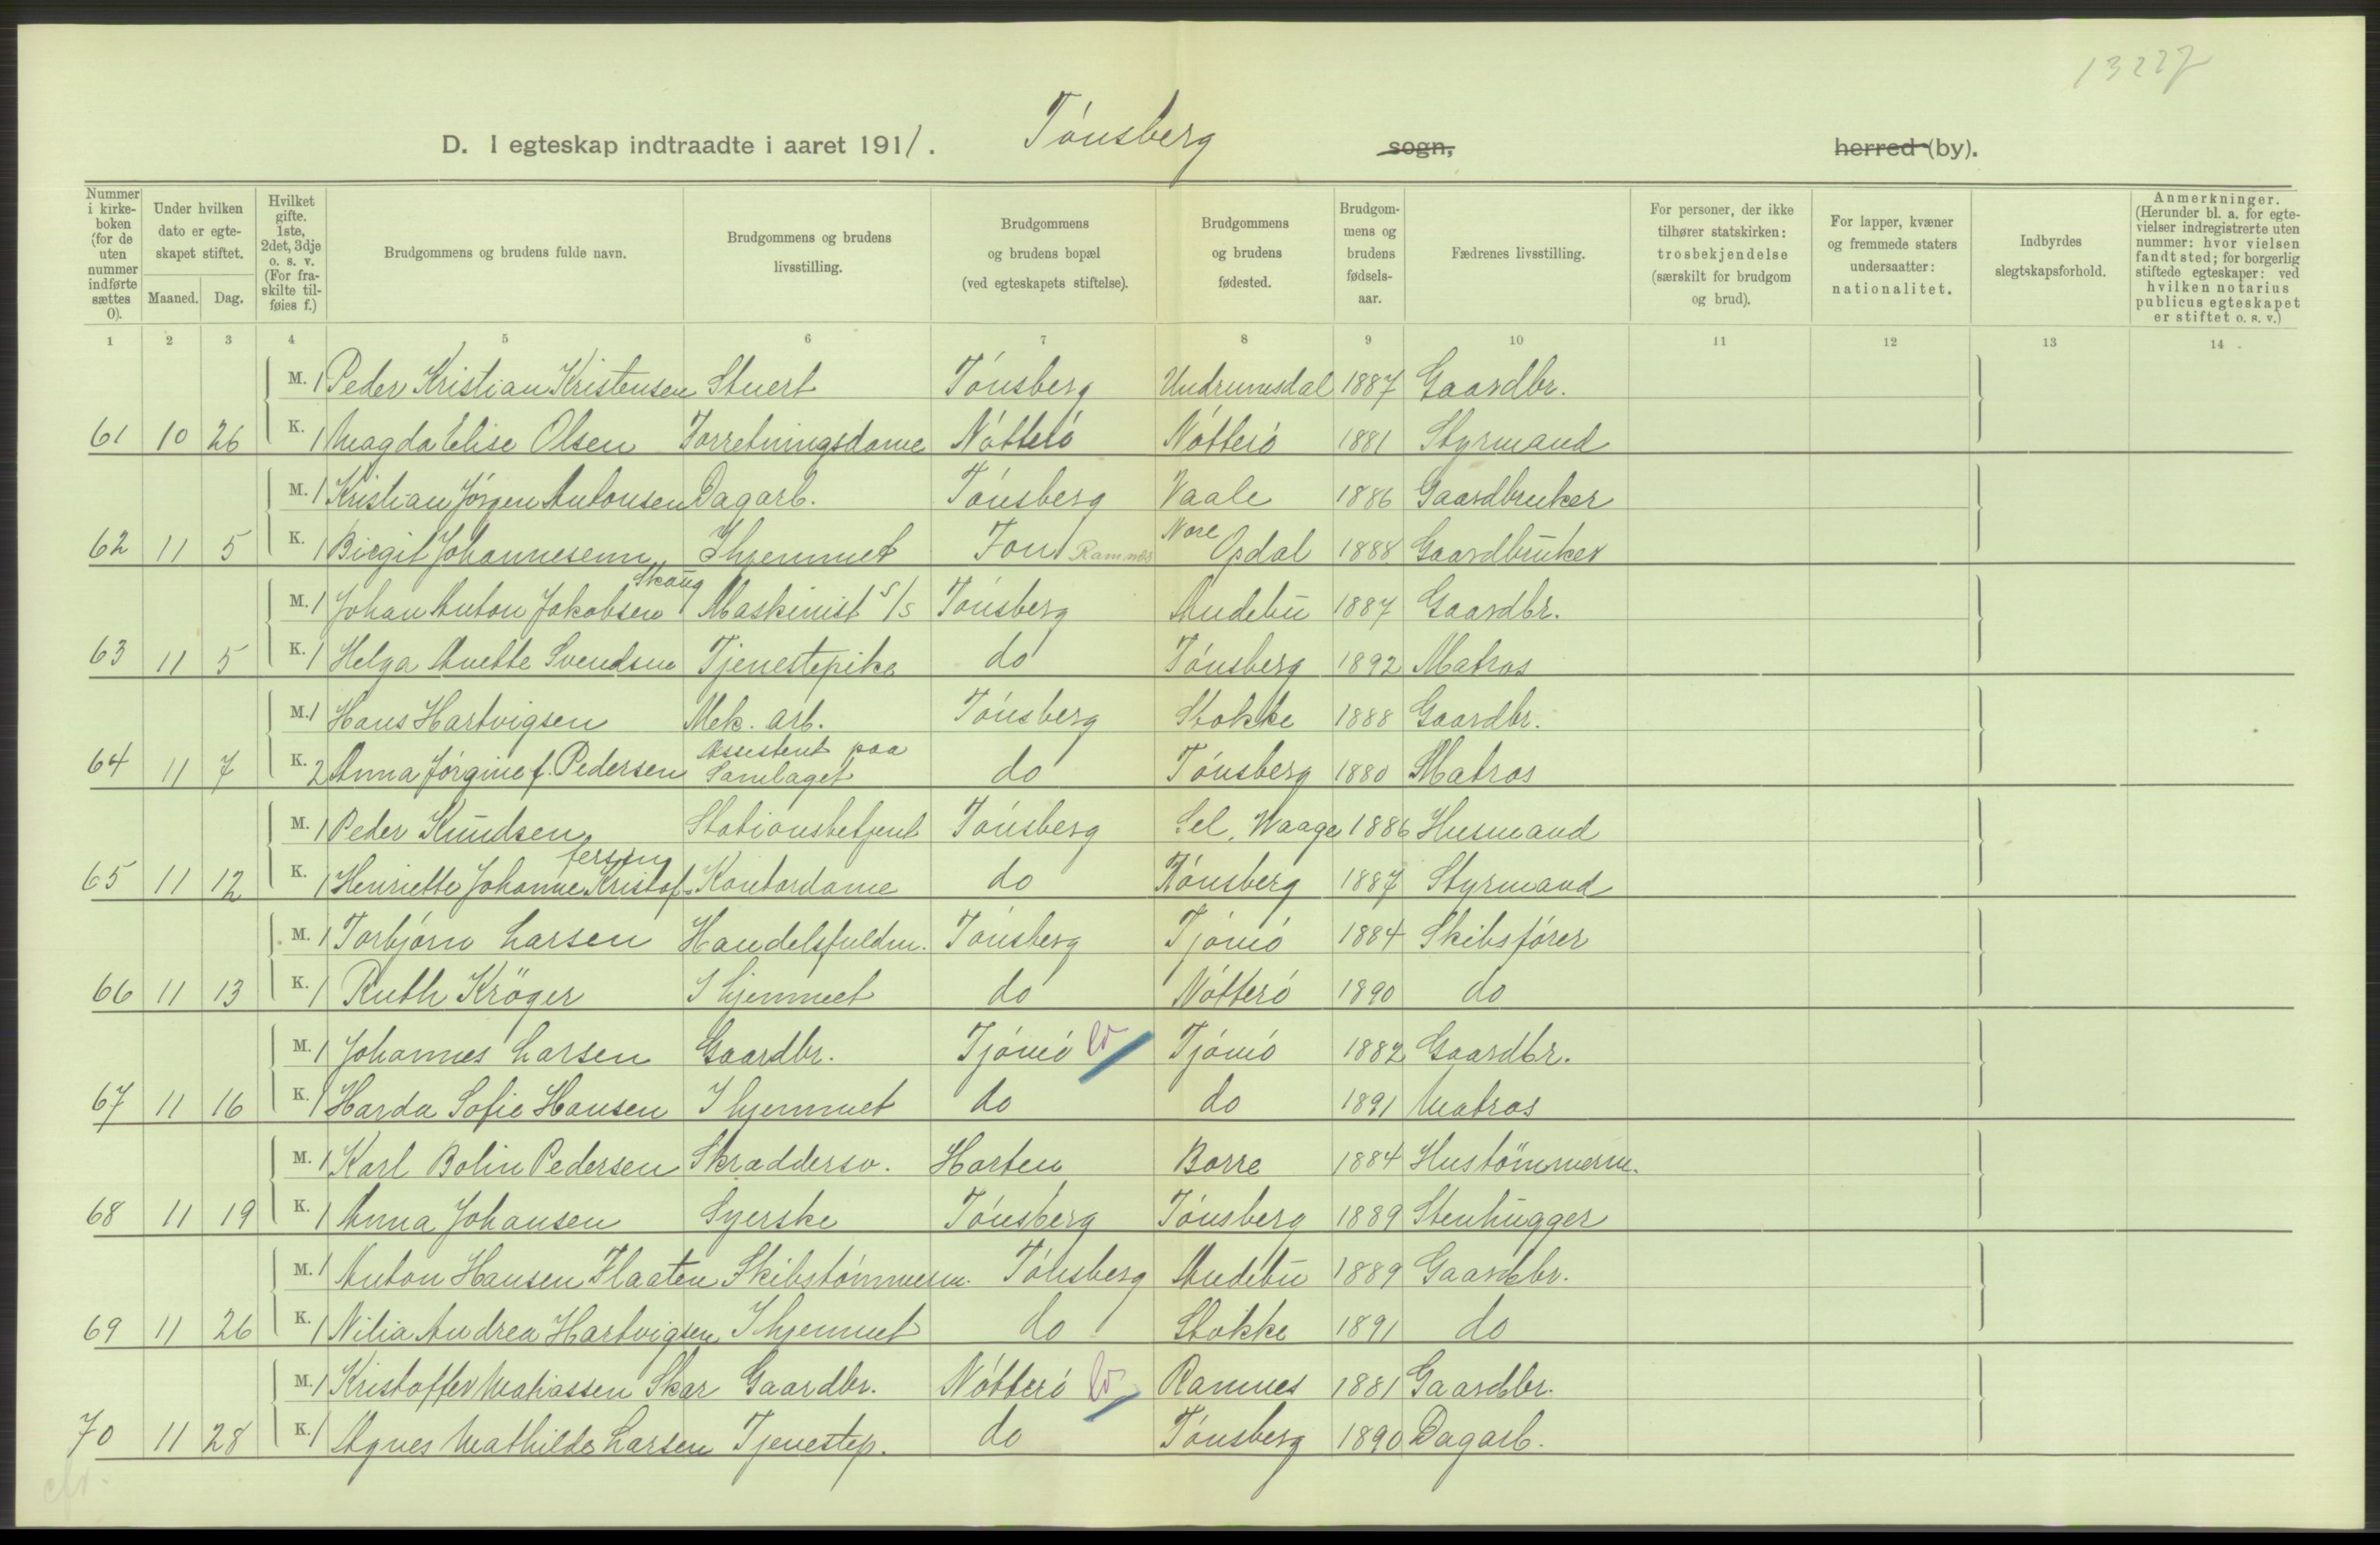 13227
D. I egteskap indtraadte i aaret 1911. Tönsberg sogn, herred (by).
Nummer i kirke- boken (for de uten nummer indførte sættes 0).
Under hvilken dato er egte- skapet stiftet.
Maaned. Dag.
Hvilket gifte. 1ste, 2det, 3dje o. s. v. (For fra- skilte til- føies f.)
Brudgommens og brudens fulde navn.
Brudgommens og brudens livsstilling.
Brudgommens og brudens bopæl (ved egteskapets stiftelse).
Brudgommens og brudens fødested.
Brudgom- mens og brudens fødsels- aar.
Fædrenes livsstilling.
For personer, der ikke tilhører statskirken: trosbekjendelse (særskilt for brudgom og brud).
For lapper, kvæner og fremmede staters undersaatter: nationalitet.
Indbyrdes slegtskapsforhold.
Anmerkninger. (Herunder bl. a. for egte- vielser indregistrerte uten nummer: hvor vielsen fandt sted; for borgerlig stiftede egteskaper: ved hvilken notarius publicus egteskapet er stiftet o. s. v.)
1 2 3 4 5 6 7 8 9 10 11 12 13 14
M. 1 Peder Kristian Kristensen Stuert Tönsberg Undrumsdal 1887 Gaardbr.
61 10 26 K. 1 Magda Elise Olsen Forretningsdame Nötterö Nötterö 1881 Styrmand
M. 1 Kristian Jörgen Antonsen Dagarb. Tönsberg Vaale 1886 Gaardbruker
62 11 5 K. 1 Birgit Johannesenn I hjemmet Fon Ramnes Nore Opdal 1888 Gaardbruker
M. 1 Johan Anton Jakobsen Skaug Maskinist S/S Tönsberg Andebu 1887 Gaardbr.
63 11 5 K. 1 Helga Anette Svendsen Tjenestepike do Tönsberg 1892 Matros
M. 1 Hans Hartvigsen Mek. arb. Tönsberg Stokke 1888 Gaardbr.
64 11 7 K. 2 Anna Jörgine f. Pedersen Assistent paa Samlaget do Tönsberg 1880 Matros
M. 1 Peder Knudsen Stationsbetjent Tönsberg Sel, Waage 1886 Husmand
65 11 12 K. 1 Henriette Johanne Kristof- fersen Kontordame do Tönsberg 1887 Styrmand
M. 1 Torbjörn Larsen Handelsfuldm. Tönsberg Tjömö 1884 Skibsförer
66 11 13 K. 1 Ruth Kröger I hjemmet do Nötterö 1890 do
M. 1 Johannes Larsen Gaardbr. Tjömö Tjömö 1882 Gaardbr.
67 11 16 K. 1 Harda Sofie Hansen I hjemmet do do 1891 Matros
M. 1 Karl Bolin Pedersen Skræddersv. Horten Borre 1884 Hustömmerm.
68 11 19 K. 1 Anna Johansen Syerske Tönsberg Tönsberg 1889 Stenhugger
M. 1 Anton Hansen Flaaten Skibstömmerm. Tönsberg Andebu 1889 Gaardbr.
69 11 26 K. 1 Nilia Andrea Hartvigsen I hjemmet do Stokke 1891 do
M. 1 Kristoffer Matiassen Skar Gaardbr. Nötterö Ramnes 1881 Gaardbr.
70 11 28 K. 1 Agnes Mathilde Larsen Tjenestep. do Tönsberg 1890 Dagarb.